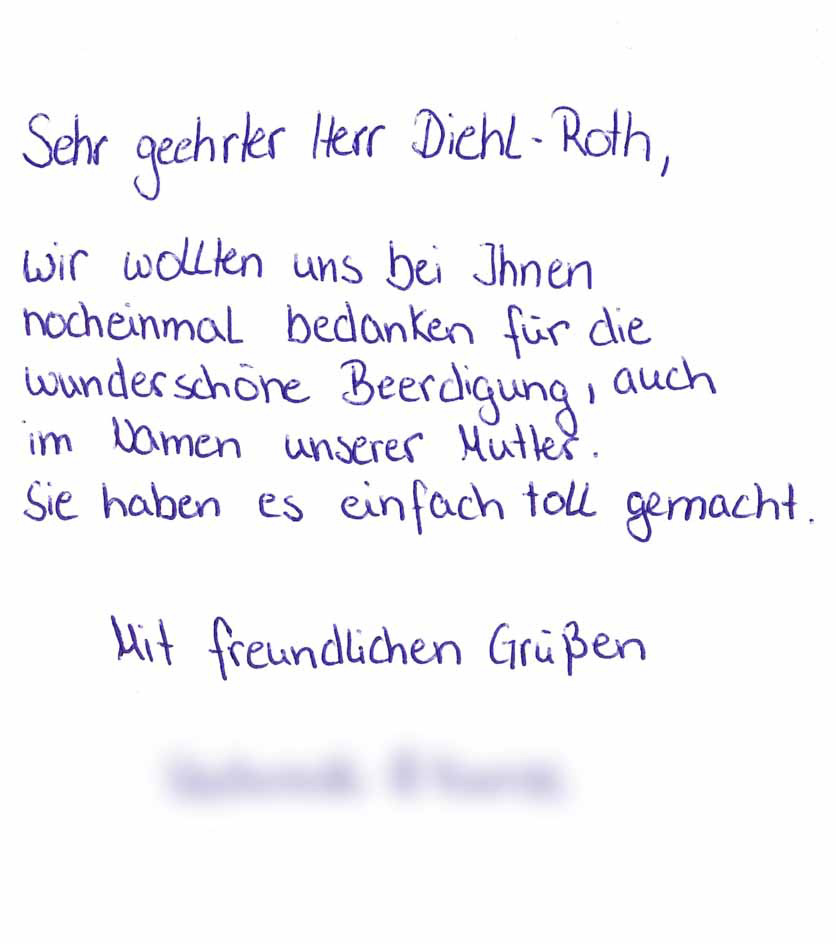 Sehr geehrter Herr Diehl-Roth,
wir wollten uns bei Ihnen
nocheinmal bedanken für die
wunderschöne Beerdigung, auch
im Namen unserer Mutter.
Sie haben es einfach toll gemacht.
Mit freundlichen Grüßen